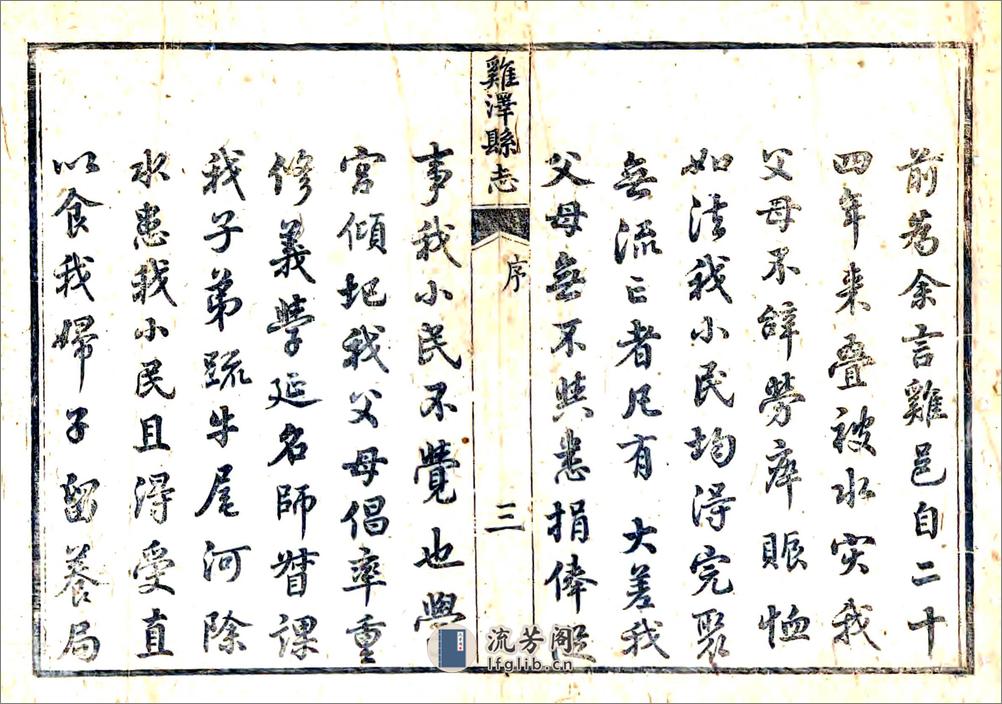 前為余言雞邑自二十
四年来疊被水灾我
父母不辭勞瘁賑恤
如法我小民均得完聚
無流亡者凡有 大差我
父母無不典悉捐俸
雞澤縣志
序
三
事我小民不覺也學
宮傾圯我父母倡率重
修義學延名師督課
我子弟疏牛尾河除
水患我小民且得受直
以食我婦子留養局
流芳阁
lfglib.cn